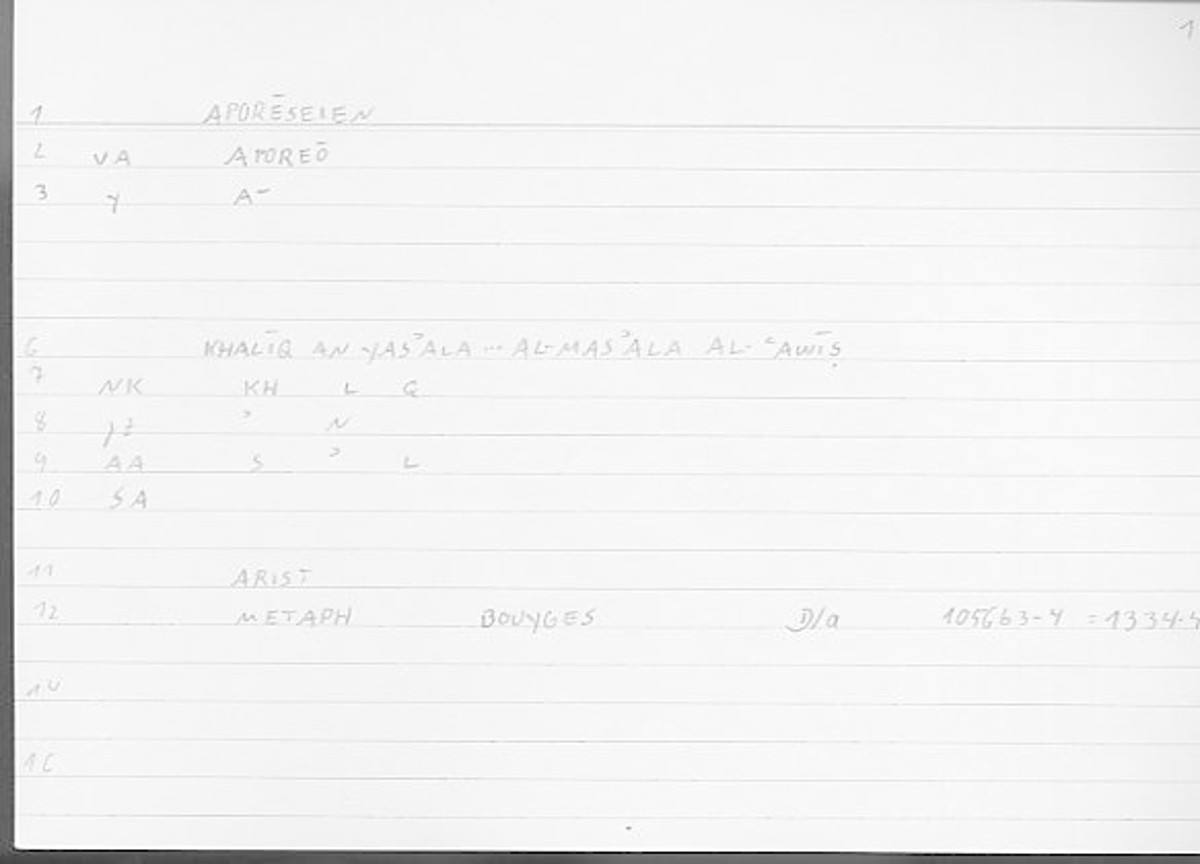 1
1 APORĒSEIEN
2 VA APOREŌ
3 γ A–
6 KHALĪQ AN YASʾALA ... AL-MASʾALA AL-ʿAWĪṢ
7 NK KH L Q
8 ʾ N
9 AA S ʾ L
10 SA
11 ARIST
12 METAPH BOUYGES D/a 1056b3-4 = 1334.4
14
16